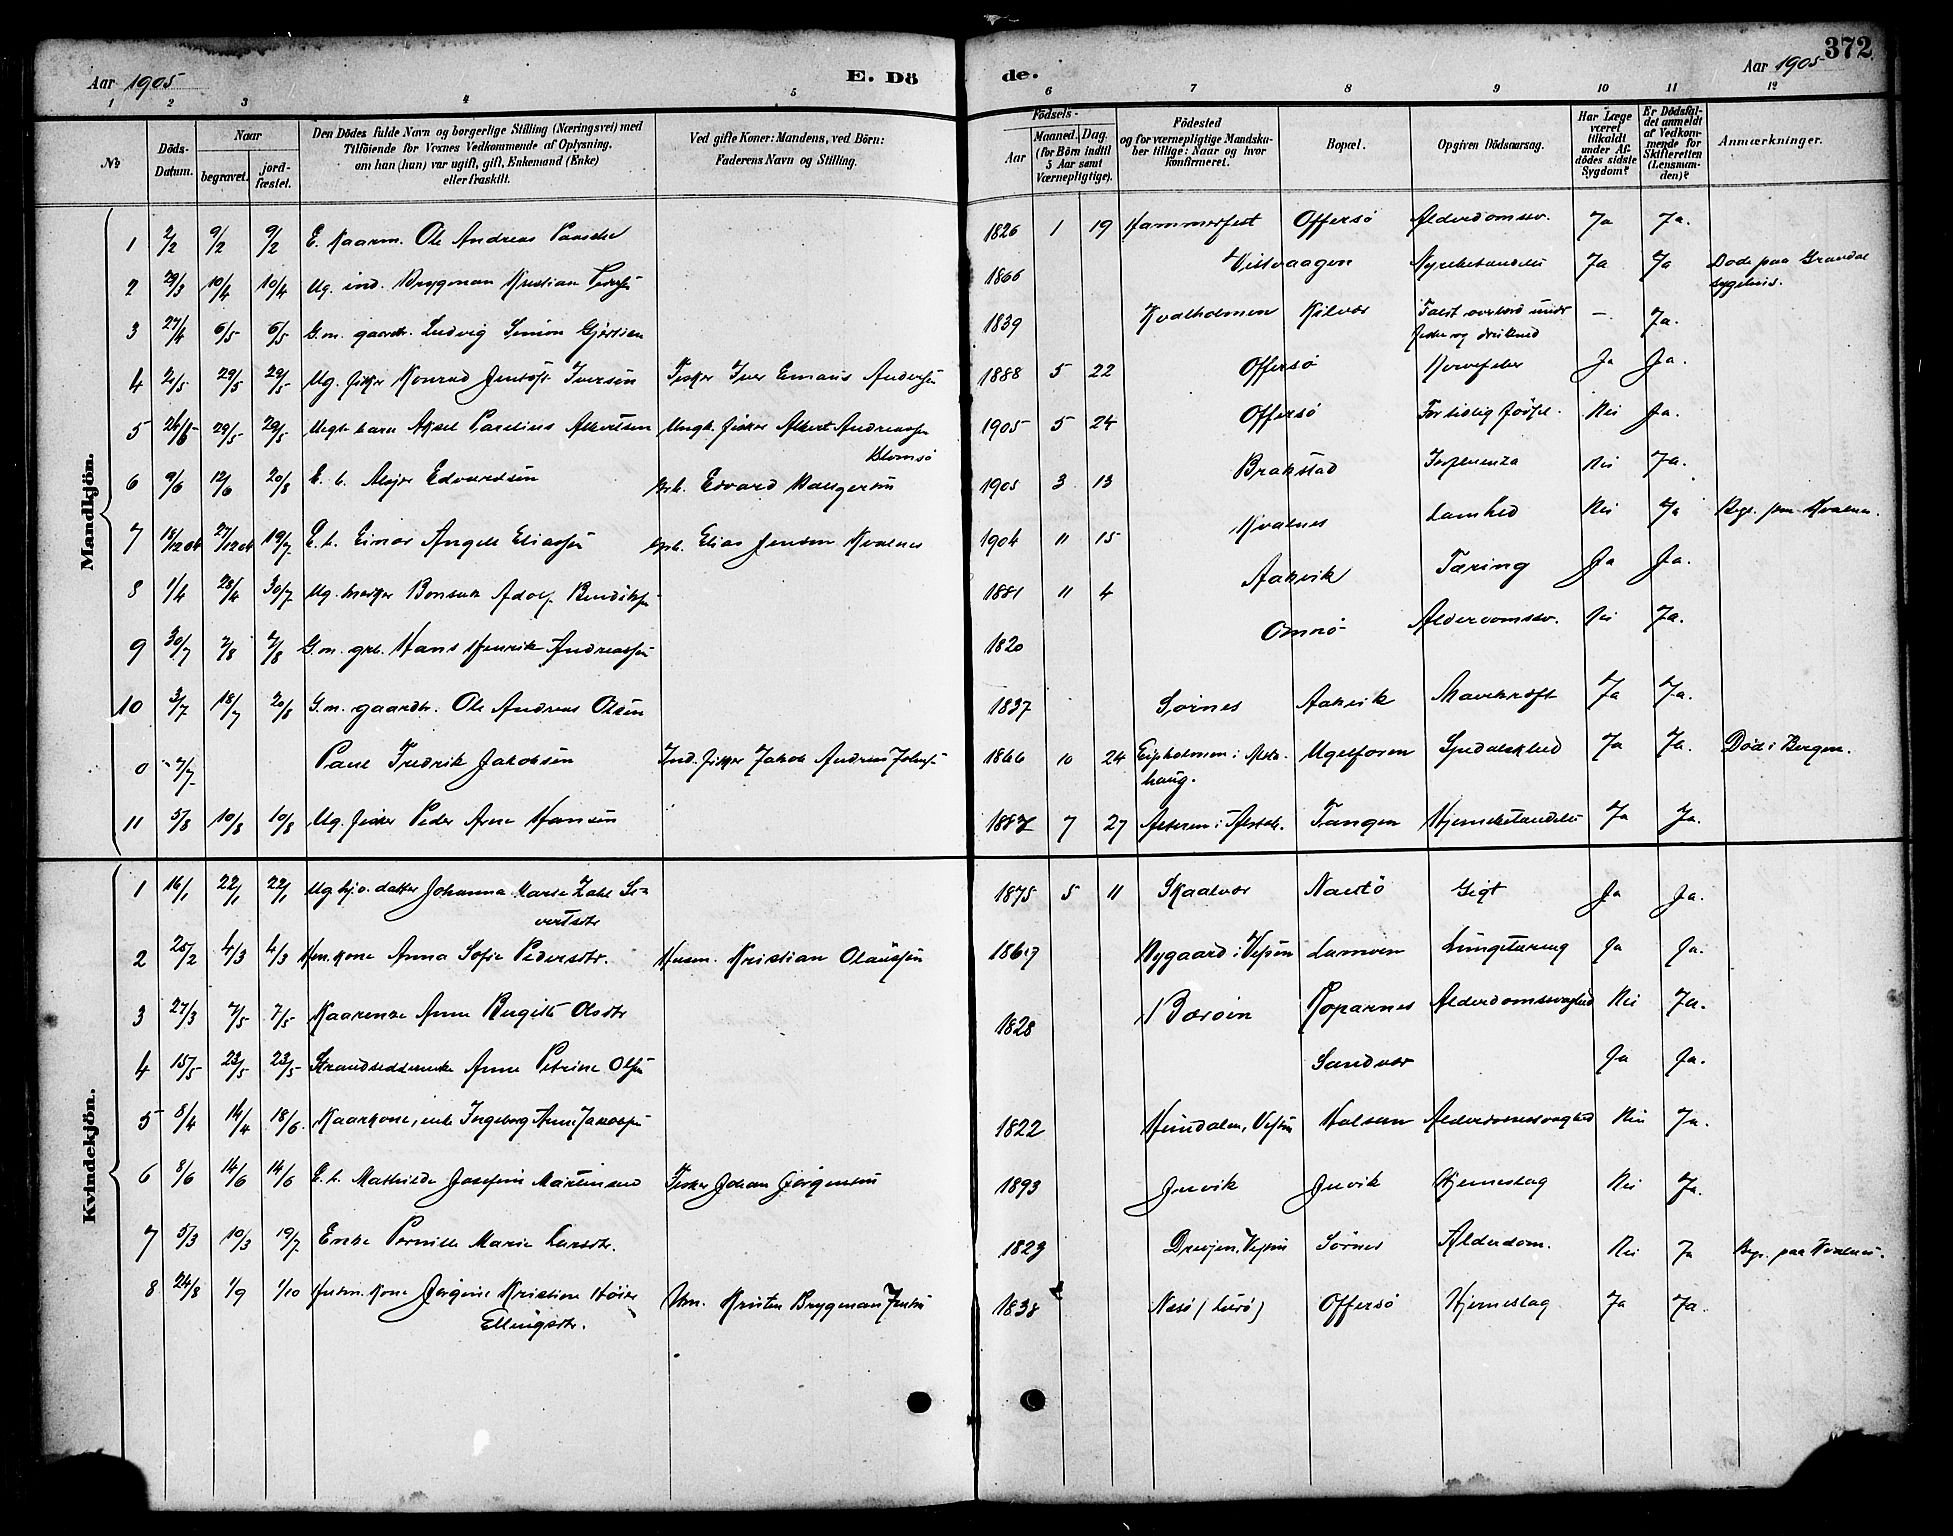 372
Aar 1905
E. Dö
de.
Aar 1905
1 2 3 4 5 6 7 8 9 10 11 12
No
Döds-
Datum.
Naar
begravet.
jord-
fæstet.
Den Dödes fulde Navn og borgerlige Stilling (Næringsvei) med
Tilföiende for Voxnes Vedkommende af Oplysning,
om han (hun) var ugift, gift, Enkemand (Enke)
eller fraskilt.
Ved gifte Koner: Mandens, ved Börn:
Faderens Navn og Stilling.
Födsels-
Aar
Maaned. Dag.
(for Börn indtil
5 Aar samt
Værnepligtige).
Födested
og for værnepligtige Mandska-
ber tillige: Naar og hvor
konfirmeret.
Bopæl.
Opgiven Dödsaarsag.
Har Læge
været
tilkaldt
under Af-
dödes sidste
Sygdom?
Er Dödsfal-
det anmeldt
af Vedkom-
mende for
Skifteretten
(Lensman-
den)?
Anmærkninger.
Mandkjön.
1 2/2 9/2 9/2 E. Kaarm. Ole Andreas 1826 1 19 Hammerfest Offersö Alderdomssv. Ja Ja.
2 29/3 10/4 10/4 Ug. ind. Brygman Kristian 1866 Ja Ja Död paa
3 27/4 6/5 6/5 G.m. gaardbr. Ludvig Simon 1839 Kvalholmen Falt overbord under
fiske og druknet — Ja.
4 21/5 29/5 29/5 Ug. fisker Konrad Iversen Fisker Iver Andersen 1888 5 22 Offersö Nervefeber Ja Ja.
5 26/5 29/5 29/5 Uægte barn Aksel Parelius Albertsen Ungk. fisker Albert Andreassen
Blomsö 1905 5 24 Offersö For tidlig Nei Ja.
6 9/6 12/6 20/8 E. b. Edvardsen Edvard 1905 3 13 Brakstad Influenza Nei Ja.
7 18/12 04 27/12 04 19/7 E. b. Einar Angell Eliassen Elias Jensen Kvalnes 1904 11 15 Kvalnes Lamhed Nei Ja Begr. paa Kvalnes.
8 1/4 28/4 30/7 Ug. Bonsak Adolf 1881 11 4 Aakvik Tæring Ja Ja.
9 30/7 2/8 2/8 G.m. grb. Hans Henrik Andreassen 1820 Omnö Alderdomssv. Nei Ja.
10 3/7 18/7 20/8 G.m. gaardbr. Ole Andreas Olsen 1837 Sörnes Aakvik Mavekræft Ja Ja.
0 7/7 Paul Fredrik Jakobsen Ind. fisker Jakob Andreas 1866 10 24 i Alsta-
haug. Spedalskhed Ja Ja. Död i Bergen.
11 5/8 10/8 10/8 Ug. fisker Peder Arne Hansen 1887 7 27 Alsteren i Alstah. Tangen Hjernebetændelse Ja Ja.
Kvindekjön.
1 16/1 22/1 22/1 Ug. hj.v. datter Johanna Marie Zahl Si-
vertsdtr 1875 5 11 Skaalvær Naustö Gigt Ja Ja.
2 25/2 4/3 4/3 Hm.kone Anna Sofie Pedersdtr. Husm. Kristian Olaussen 1867 Nygaard i Vefsen Lungetæring Ja Ja.
3 27/3 7/5 7/5 Kaarenke Anne Olsdtr 1828 Bæröen Roparnes Alderdomssvaghed Nei Ja.
4 15/5 23/5 23/5 Strandsidderenke Anne Petrine Olsen Sandvær Ja Ja.
5 8/4 14/4 18/6 Kaarkone, enke Ingeborg Anne 1822 Vefsen Alderdomssvaghed Nei Ja.
6 8/6 14/6 14/6 E. b. Mathilde Josefine Martinsen Fisker Johan Jörgensen 1893 Hjerneslag Nei Ja.
7 5/3 10/3 19/7 Enke Pernille Marie Larsdtr. 1829 Drevjen, Vefsen Sörnes Alderdom. Nei Ja Begr. paa Kvalnes.
8 24/8 1/9 1/10 Husm. kone Jörgine Kristine
Ellingsdtr. Hm. Kristen Brygman Jensen 1838 Næsö (Lurö) Offersö Hjerneslag Ja Ja.